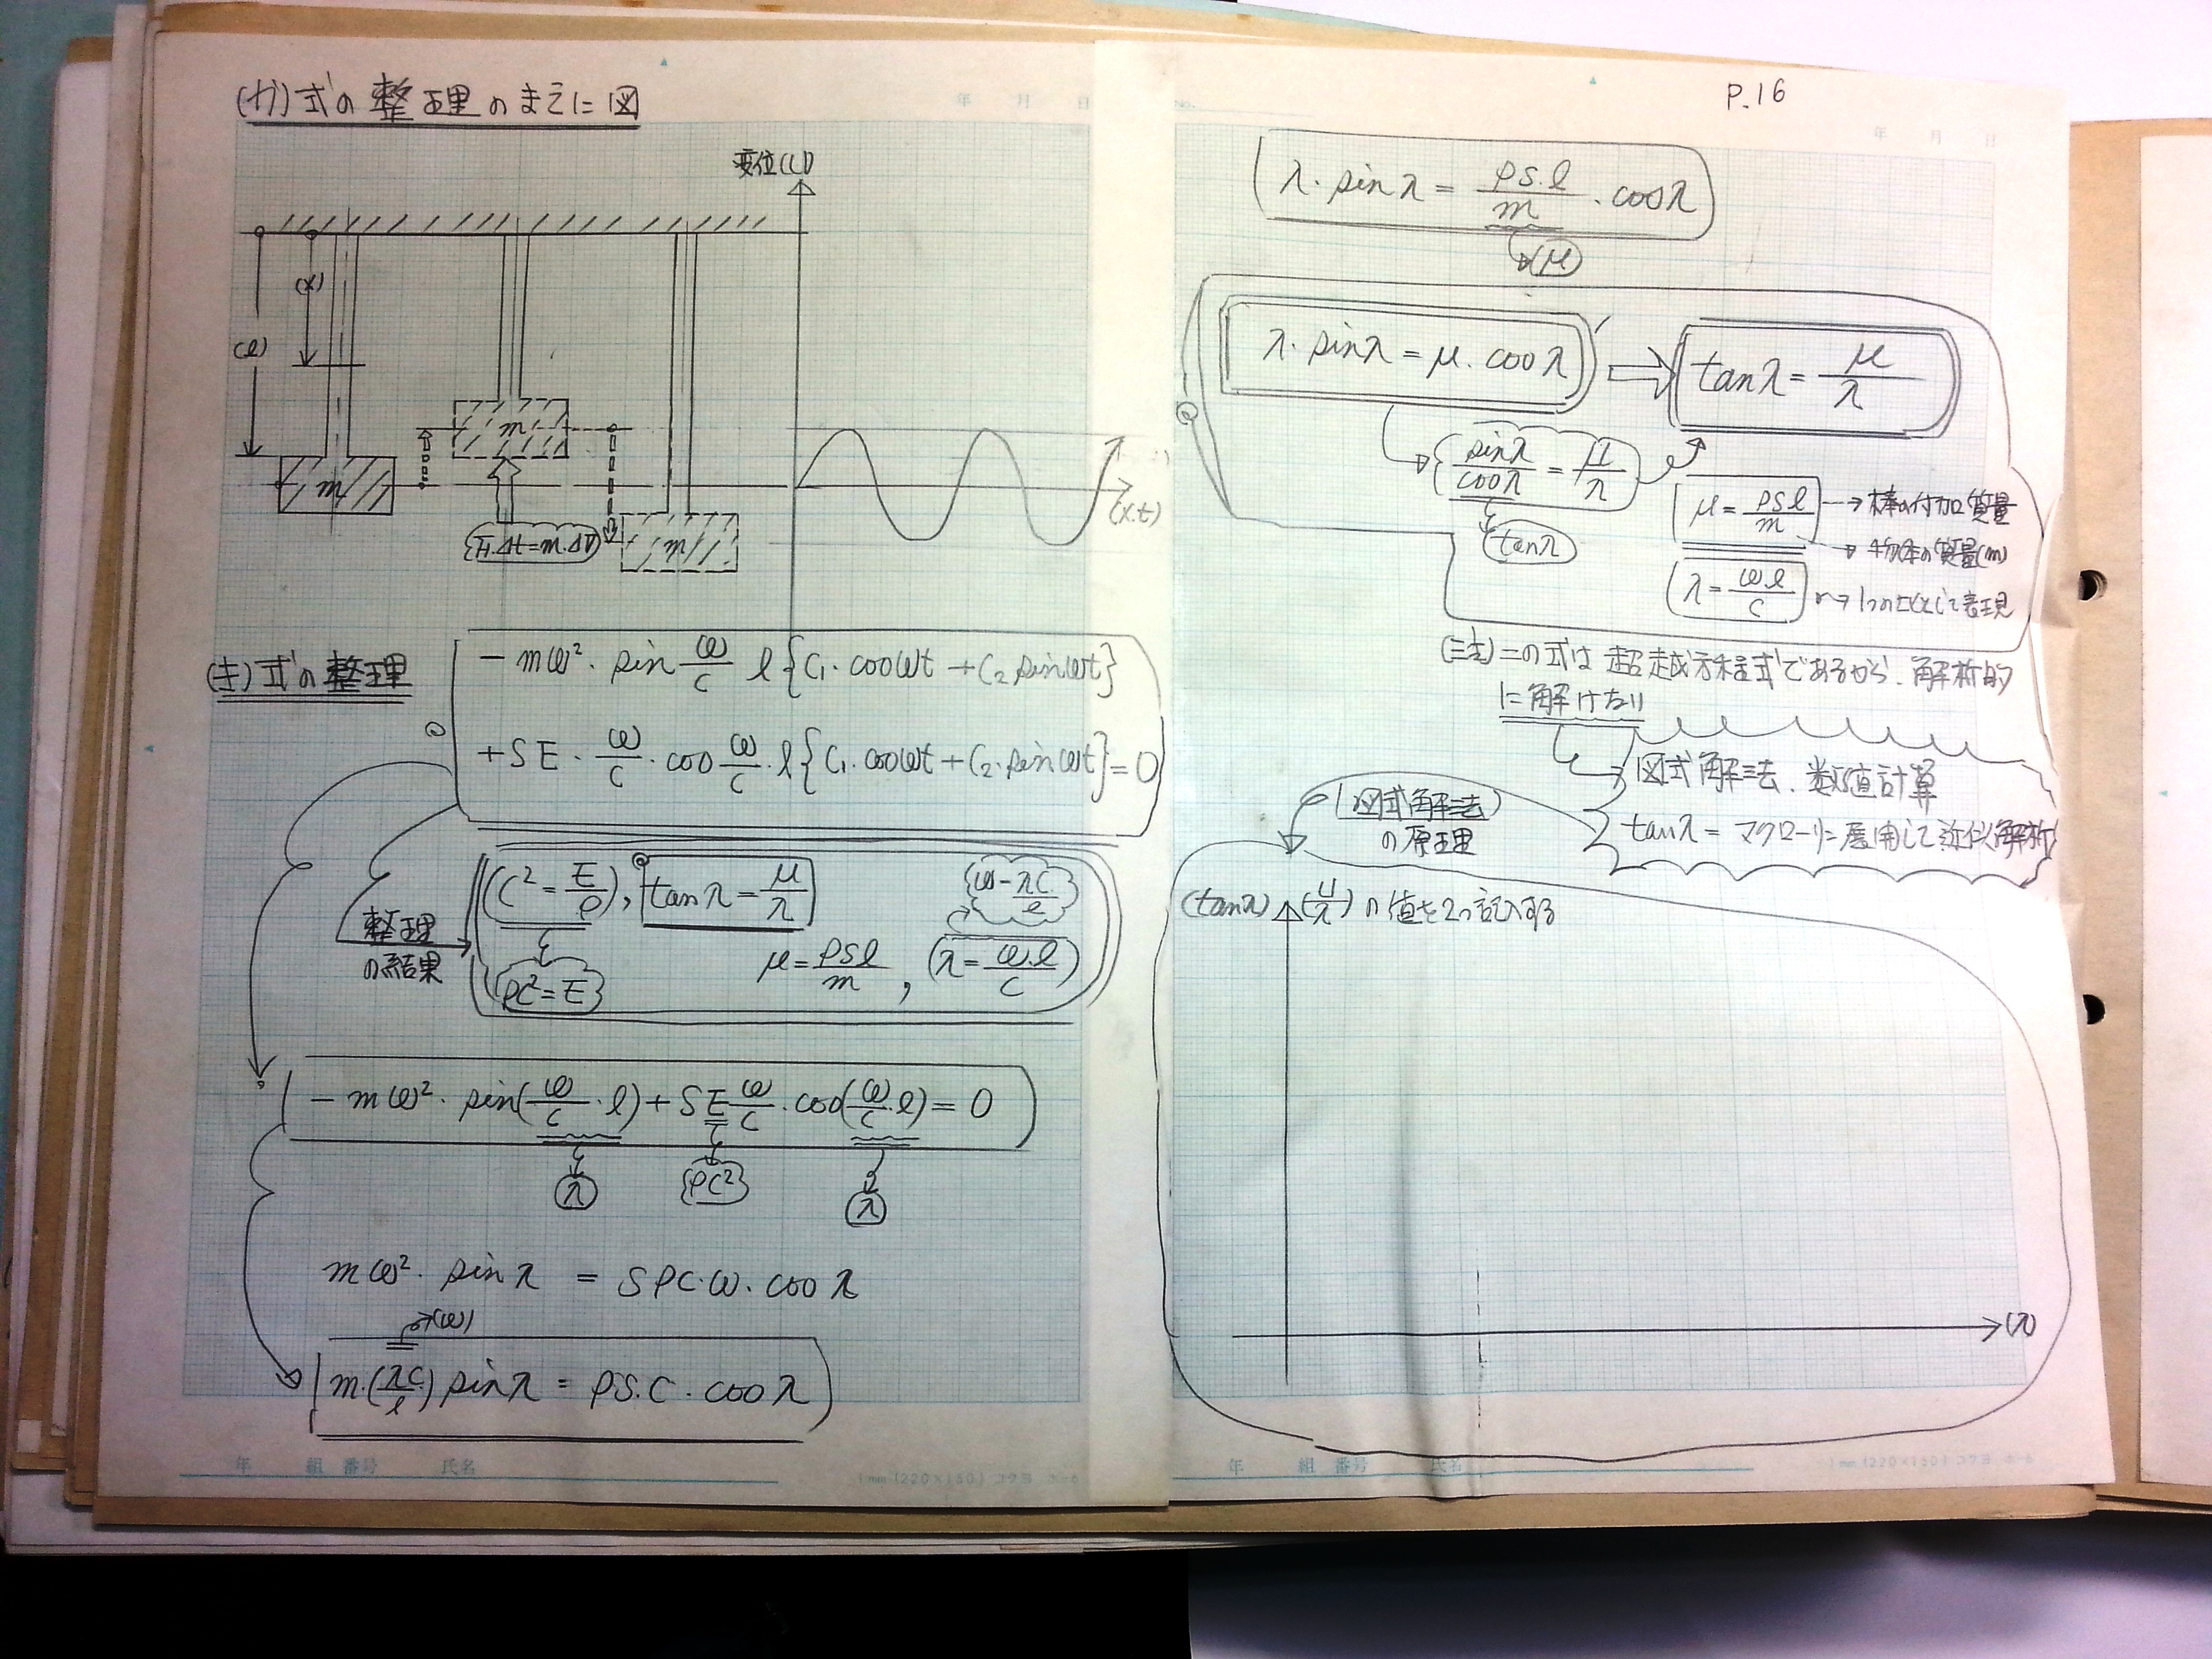 (カ)式の整理のまえに図
年 月 日
変位(U)
(x)
(l)
m
m
m
F.Δt=m.ΔV
(x.t)
(キ)式の整理
-mω²・sin ω/c l{C₁・cosωt+C₂ sinωt}
+SE・ω/c・cos ω/c・l{C₁・cosωt+C₂・sinωt}=0
整理の結果
(C²=E/ρ), tanλ=μ/λ
ω=λC/l
ρC²=E
μ=ρSl/m , (λ=ω.l/C)
-mω²・sin(ω/c・l)+SE ω/c・cos(ω/c・l)=0
λ
ρC²
λ
mω²・sinλ = SρC・ω・cosλ
(ω)
m・(λC/l)sinλ = ρS.C・cosλ
年 組 番号 氏名
1mm(220×150) コクヨ ホ-6
No.
P.16
年 月 日
λ・sinλ=ρS.l/m・cosλ
(μ)
λ・sinλ=μ・cosλ ⇒ tanλ=μ/λ
sinλ/cosλ=μ/λ
tanλ
μ=ρSl/m → 棒の付加質量
→ 物体の質量(m)
λ=ω.l/c → 1つの文字として表現
(注)この式は超越方程式であるから、解析的
に解けない
図式解法、数値計算
tanλ=マクローリン展開して近似解析
図式解法
の原理
(tanλ) (μ/λ)の値を2つ記入する
(λ)
年 組 番号 氏名
1mm(220×150) コクヨ ホ-6